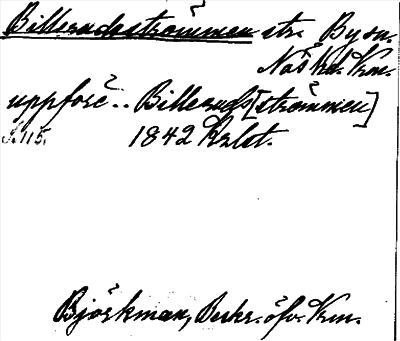 Billerudsströmmen str. By sn.
Näs hd. Krm.
uppförd.. Billeruds[strömmen]
S. 115. 1842 Krlst.
Björkman, Beskr. öfv. Krm.